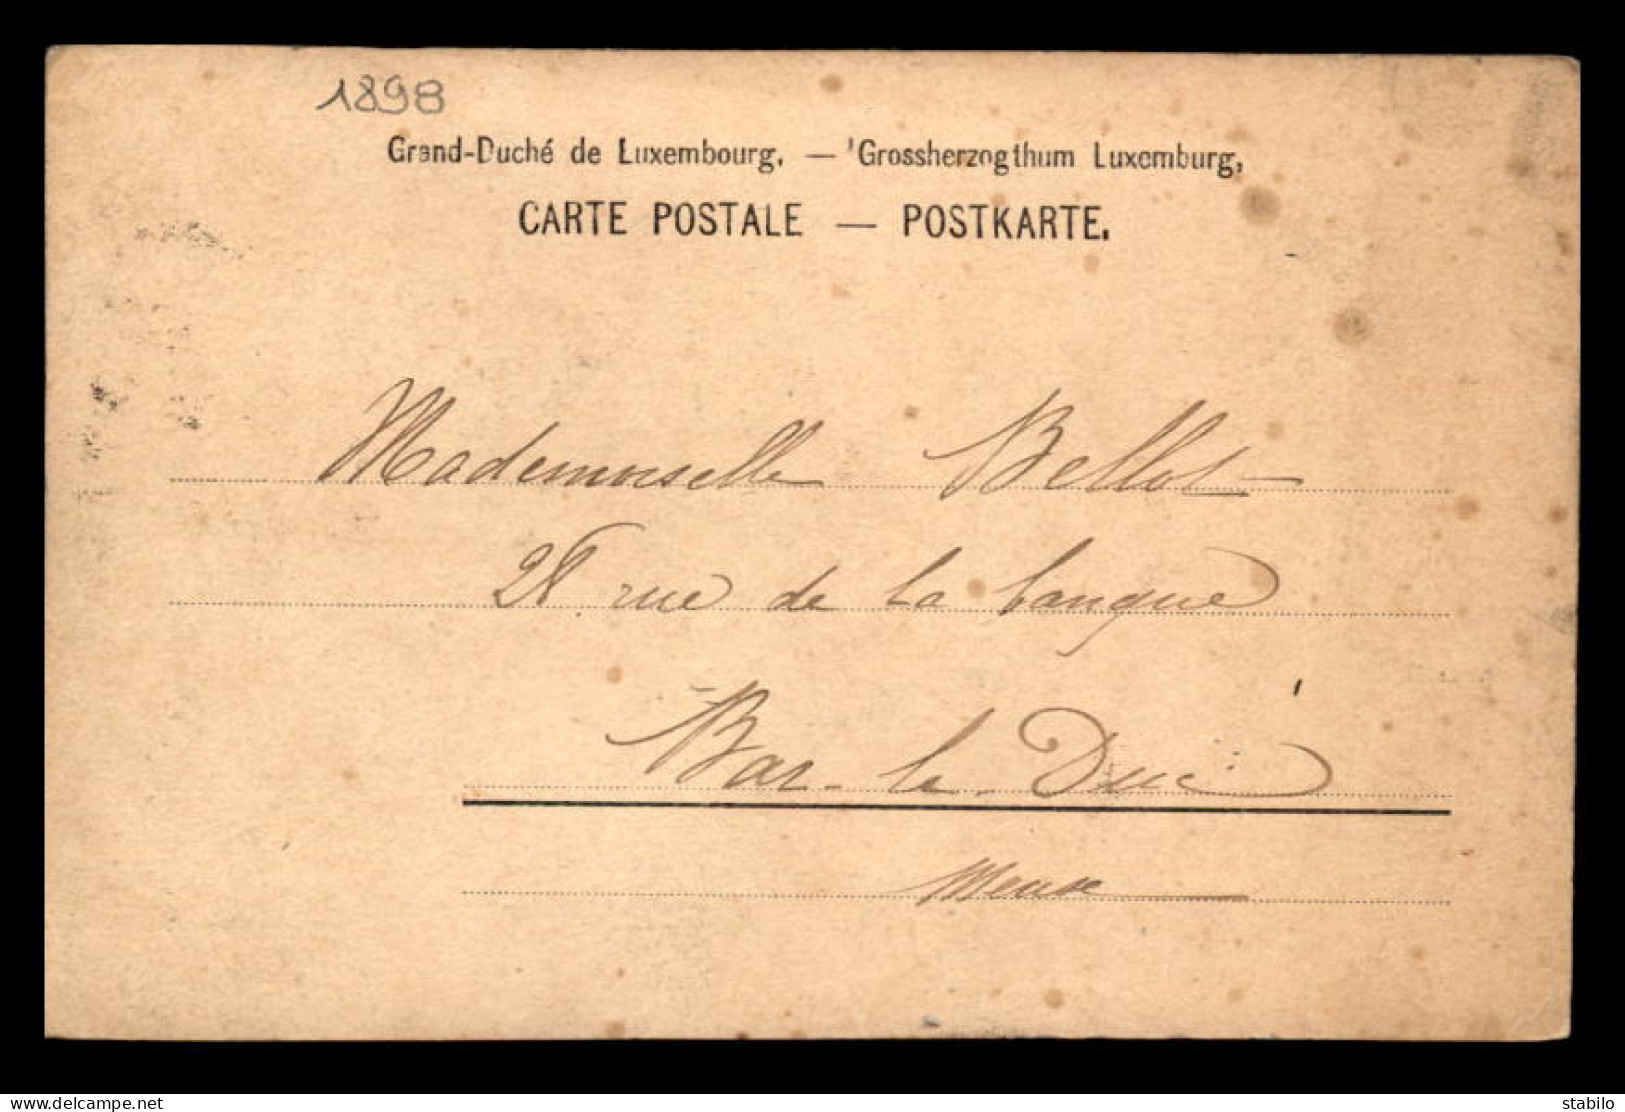 1898
Grand-Duché de Luxembourg. — Grossherzogthum Luxemburg,
CARTE POSTALE — POSTKARTE.
Mademoiselle Bellot
28 rue de la banque
Bar-le-Duc
Meuse
delcampe.net
stabilo